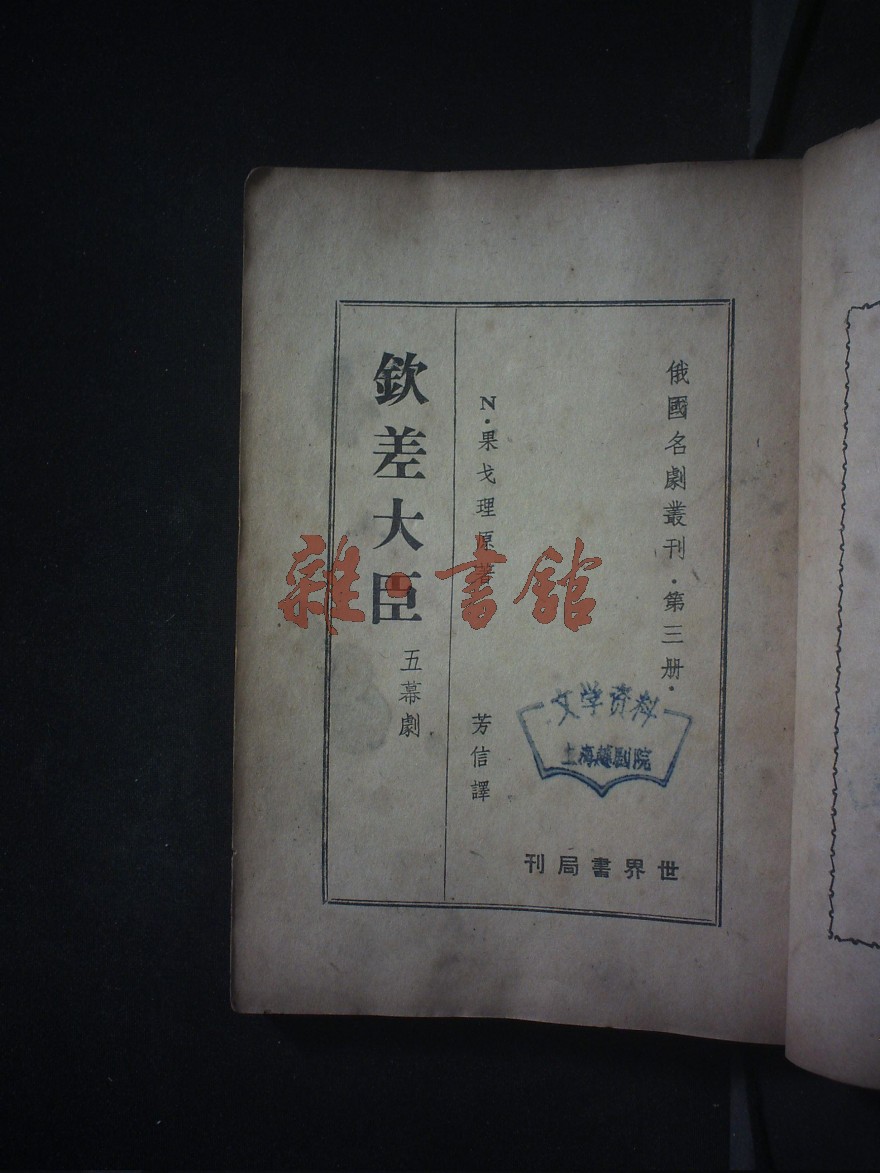 俄國名劇叢刊·第三册·
N·果戈理原著
芳信譯
欽差大臣
五幕劇
世界書局刊
文学资料
上海越剧院
雜·書館